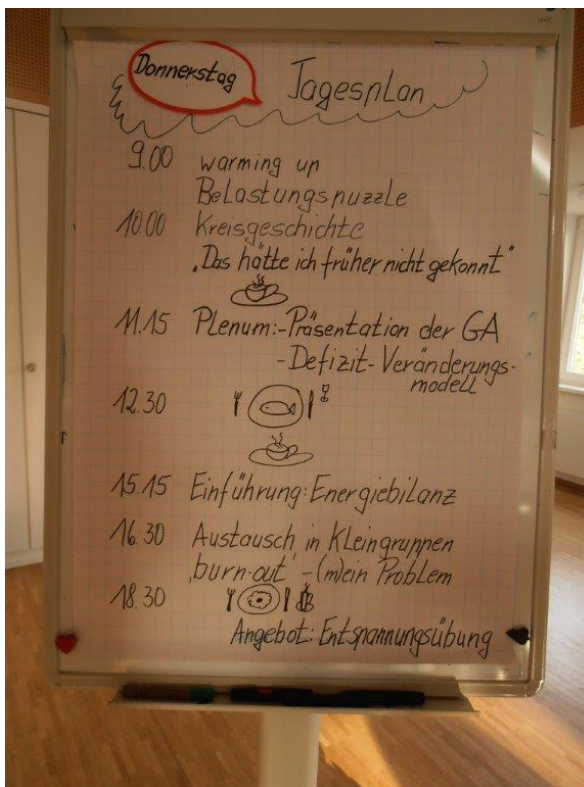 Donnerstag Tagesplan
9.00 warming up
Belastungspuzzle
10.00 Kreisgeschichte
"Das hätte ich früher nicht gekonnt"
11.15 Plenum:-Präsentation der GA
-Defizit-Veränderungs-
modell
12.30
15.15 Einführung: Energiebilanz
16.30 Austausch in Kleingruppen
'burn-out' - (m)ein Problem
18.30
Angebot: Entspannungsübung